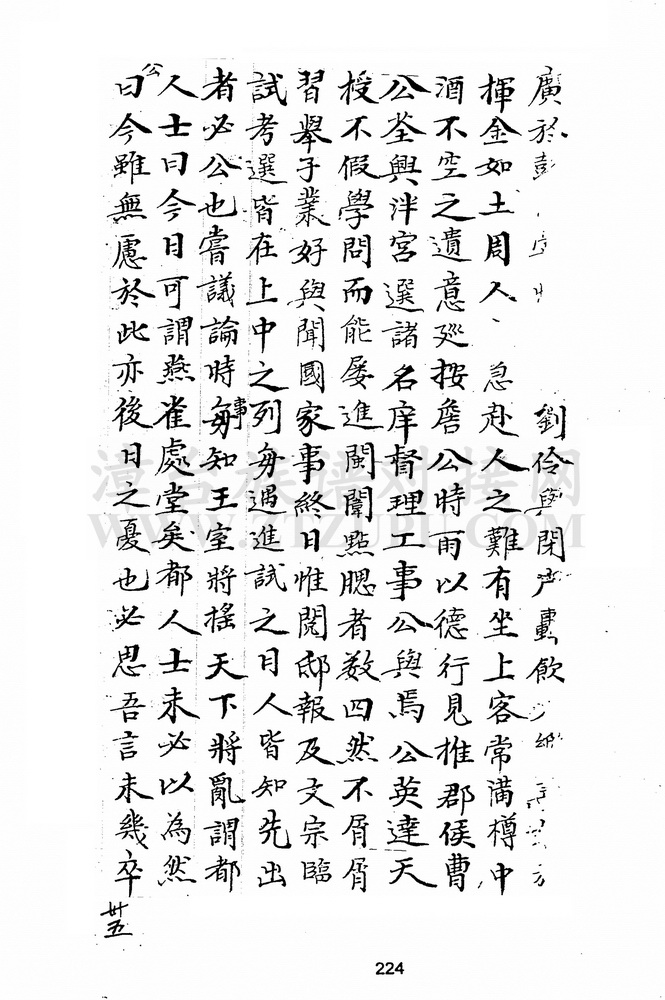 廣於彭 劉伶與閉戶 飲
揮金如土周人 急赴人之難有坐上客常滿樽中
酒不空之遺意廵按詹公時雨以德行見推郡侯曹
公荃興泮宮選諸名庠督理工事公與焉公英達天
授不假學問而能屡進闽闈點腮者数四然不屑屑
習舉子業好與聞國家事終日惟閱邸報及文宗臨
試考選皆在上中之列每遇進試之日人皆知先出
者必公也嘗議論時事每知王室將搖天下將亂謂都
人士曰今日可謂燕雀處堂矣都人士未必以為然
公曰今雖無慮於此亦後日之憂也必思吾言未幾卒
卅五
224
漳台族谱对接网
WWW.ZTZUPU.COM